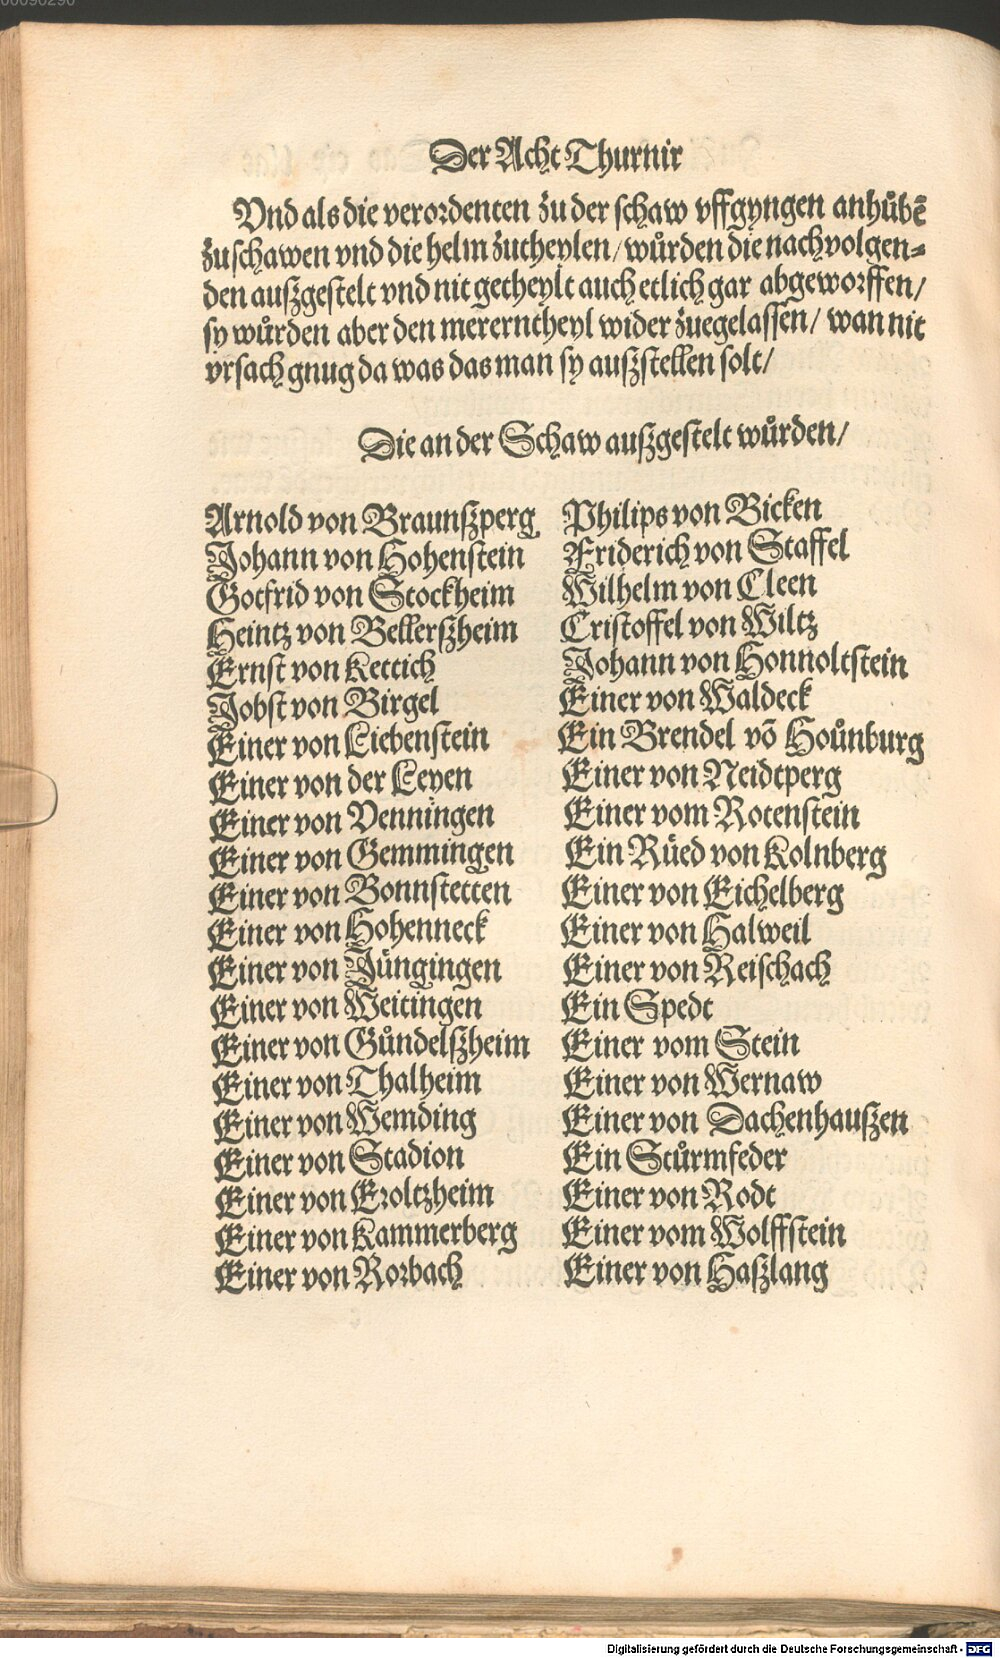 Der Acht Thurnir
Vnd als die verordenten zu der schaw vffgyngen anhůbē
zuschawen vnd die helm zutheylen/ wůrden die nachuolgen=
den auszgestelt vnd nit getheylt auch etlich gar abgeworffen/
sy wůrden aber den mererntheyl wider zuegelassen/ wan nit
vrsach gnug da was das man sy auszstellen solt/
Die an der Schaw auszgestelt wůrden/
Arnold von Braunszperg
Johann von Hohenstein
Gotfrid von Stockheim
Heintz von Bellerszheim
Ernst von Kettich
Jobst von Birgel
Einer von Liebenstein
Einer von der Leyen
Einer von Venningen
Einer von Gemmingen
Einer von Bonnstetten
Einer von Hohenneck
Einer von Jüngingen
Einer von Weitingen
Einer von Gůndelszheim
Einer von Thalheim
Einer von Wemding
Einer von Stadion
Einer von Eroltzheim
Einer von Kammerberg
Einer von Rorbach
Philips von Bicken
Friderich von Staffel
Wilhelm von Cleen
Cristoffel von Wiltz
Johann von Honnoltstein
Einer von Waldeck
Ein Brendel vō Hoůnburg
Einer von Neidtperg
Einer vom Rotenstein
Ein Rüed von Kolnberg
Einer von Eichelberg
Einer von Halweil
Einer von Reischach
Ein Spedt
Einer vom Stein
Einer von Wernaw
Einer von Dachenhauszen
Ein Stůrmfeder
Einer von Rodt
Einer vom Wolffstein
Einer von Haszlang
Digitalisierung gefördert durch die Deutsche Forschungsgemeinschaft - DFG